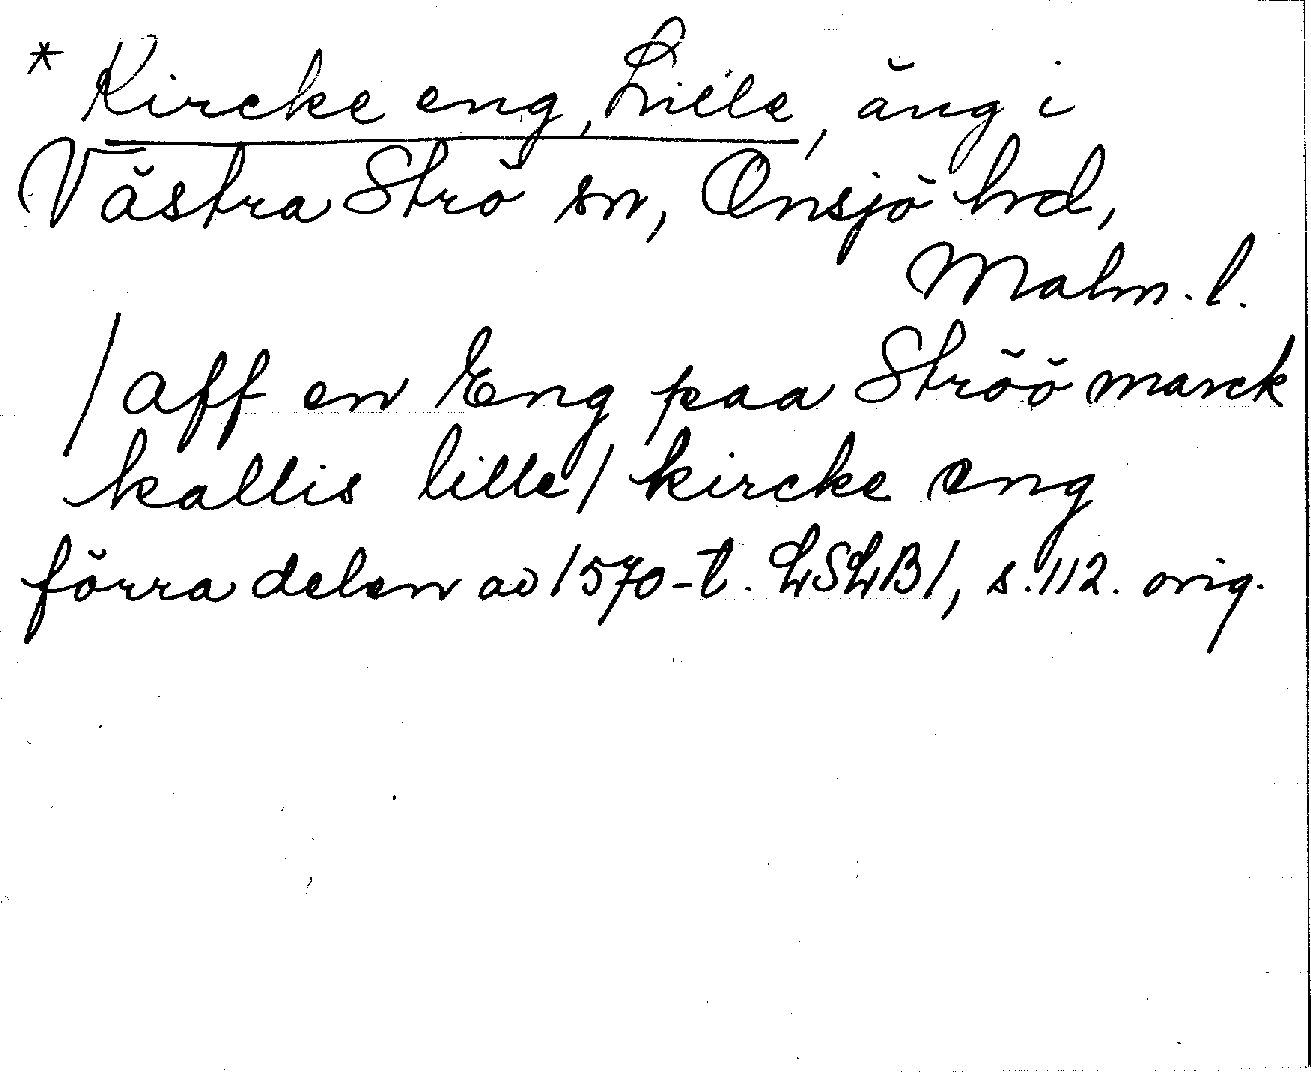 * Kircke eng, Lille, äng i
Västra Strö sn, Onsjö hd,
Malm. l.
/ aff en Eng paa Ströö marck
kallis lille / kircke eng
förra delen av 1570-t. LSLB1, s. 112. orig.